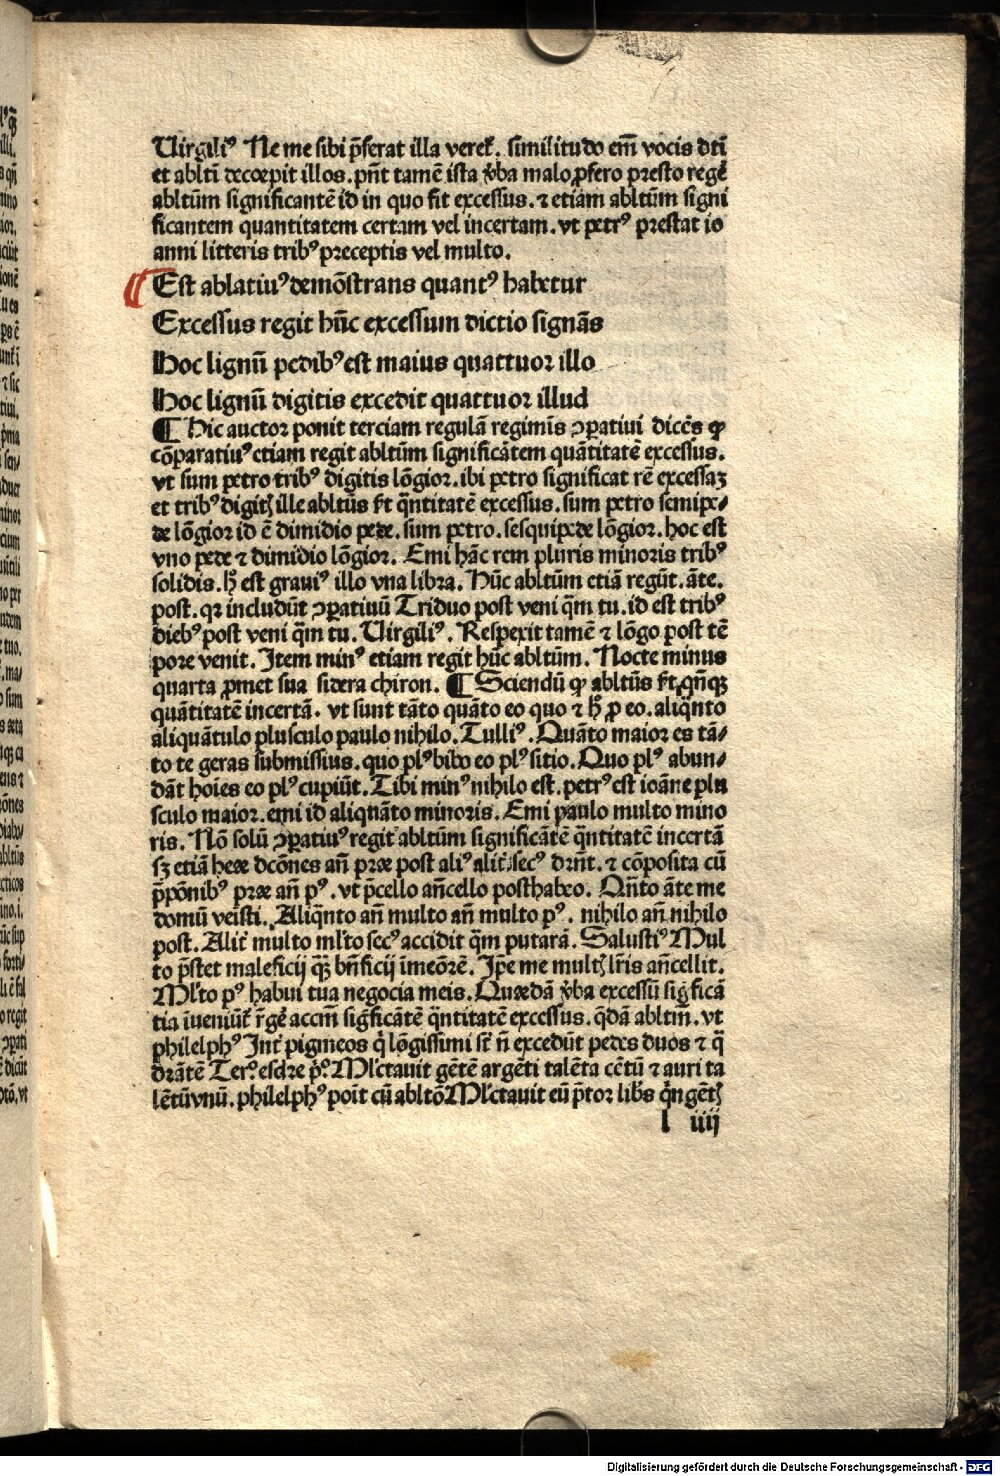 Uirgiliꝰ Ne me sibi p̄ferat illa vereť. similitudo em̄ vocis dti̅
et ablti̅ decoepit illos. pn̄t tamē ista v̄ba malo ꝓfero presto regē
abltūm significantē id in quo fit excessus. ⁊ etiam abltūm signi
ficantem quantitatem certam vel incertam. vt petrꝰ prestat io
anni litteris tribꝰ preceptis vel multo.
Est ablatiuꝰ demōstrans quantꝰ habetur
Excessus regit hūc excessum dictio signās
Hoc lignū pedibꝰ est maius quattuor illo
Hoc lignū digitis excedit quattuor illud
¶ Hic auctor ponit terciam regulā regimīs ꝯparatiui dicēs ꝙ
cōparatiuꝰ etiam regit abltūm significātem quātitatē excessus.
vt sum petro tribꝰ digitis lōgior. ibi petro significat rē excessaꝫ
et tribꝰ digitꝭ ille abltūs st̄ q̄ntitatē excessus. sum petro semipe⸗
de lōgior id ē dimidio pede. sum petro. sesquipede lōgior. hoc est
vno pede ⁊ dimidio lōgior. Emi hāc rem pluris minoris tribꝰ
solidis. hꝭ est grauiꝰ illo vna libra. Hūc abltūm etiā regūt. āte.
post. qꝛ includūt ꝯparatiuū Triduo post veni q̄m tu. id est tribꝰ
diebꝰ post veni q̄m tu. Uirgiliꝰ. Respexit tamē ⁊ lōgo post tē
pore venit. Item minꝰ etiam regit hūc abltūm. Nocte minus
quarta ꝓmet sua sidera chiron. ¶ Sciendū ꝙ abltūs st̄ qn̄qꝫ
quātitatē incertā. vt sunt tāto quāto eo quo ⁊ hꝭ ꝓ eo. aliq̄nto
aliquātulo plusculo paulo nihilo. Tulliꝰ. Quāto maior es tā⸗
to te geras submissius. quo plꝰ bibo eo plꝰ sitio. Quo plꝰ abun⸗
dāt hoīes eo plꝰ cupiūt. Tibi minꝰ nihilo est. petrꝰ est ioāne plu
sculo maior. emi id aliquāto minoris. Emi paulo multo mino
ris. Nō solū ꝯparatiuꝰ regit abltūm significātē q̄ntitatē incertā
sꝫ etiā heee dcōnes an̄ præ post aliꝰ alit̄ secꝰ drn̄t. ⁊ cōposita cū
p̄pōnibꝰ præ an̄ pꝰ. vt p̄cello an̄cello posthabeo. Qn̄to āte me
domū veisti. Aliq̄nto an̄ multo an̄ multo pꝰ. nihilo an̄ nihilo
post. Alit̄ multo ml̄to secꝰ accidit q̄m putarā. Salustiꝰ Mul
to p̄stet maleficij qꝫ bn̄ficij īmeōrē. Ip̄e me multꝭ lr̄is an̄cellit.
Ml̄to pꝰ habui tua negocia meis. Quædā v̄ba excessū sig̅ficā
tia īueniūť r̄gē accm̄ sig̅ficātē q̄ntitatē excessus. q̄dā abltm̄. vt
philelphꝰ Int̄ pigmeos q̄ lōgissimi st̄ n̄ excedūt pedes duos ⁊ q̄
drātē Terꝰ esdre pꝰ. Ml̄ctauit gētē argēti talēta cētū ⁊ auri ta
lētū vnū. philelphꝰ poīt cū abltō Ml̄ctauit eū p̄tor lib̄s q̄ngētꝭ
l iiij
Digitalisierung gefördert durch die Deutsche Forschungsgemeinschaft - DFG